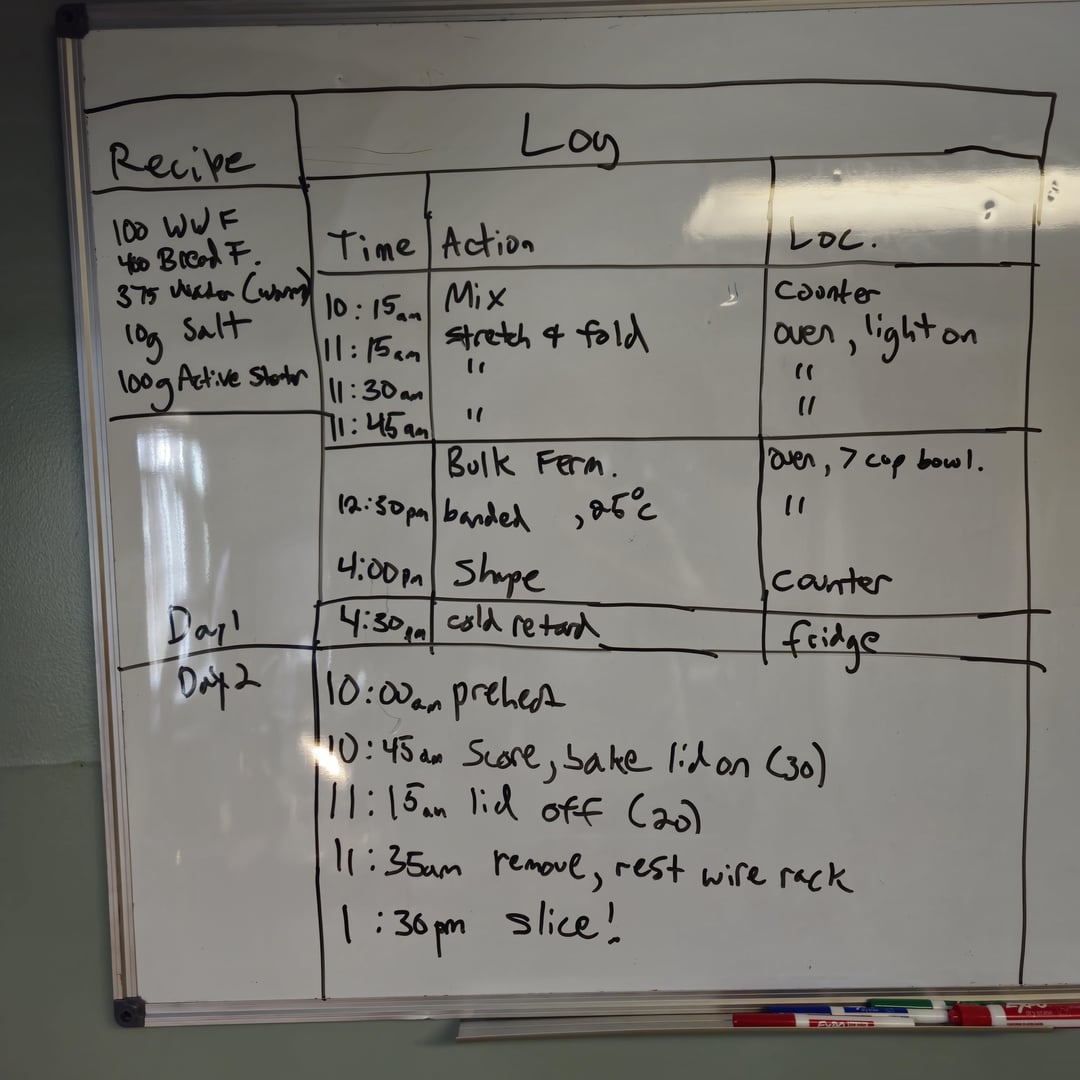 Recipe
100 WWF
400 Bread F.
375 Water (warm)
10g Salt
100g Active Starter
Log
Time Action Loc.
10:15am Mix counter
11:15am stretch & fold oven, light on
11:30am " "
11:45am " "
Bulk Ferm. oven, 7 cup bowl.
12:30pm banded , 25°C "
4:00pm Shape counter
Day 1 4:30pm cold retard fridge
Day 2 10:00am preheat
10:45am Score, bake lid on (30)
11:15am lid off (20)
11:35am remove, rest wire rack
1:30pm slice!
EXPO
EXPO